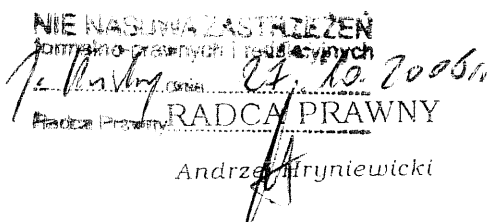 NIE NASUWA ZASTRZEŻEŃ
formalno-prawnych i redakcyjnych
dnia 27. 10. 2006r.
Radca Prawny RADCA PRAWNY
Andrzej Hryniewicki